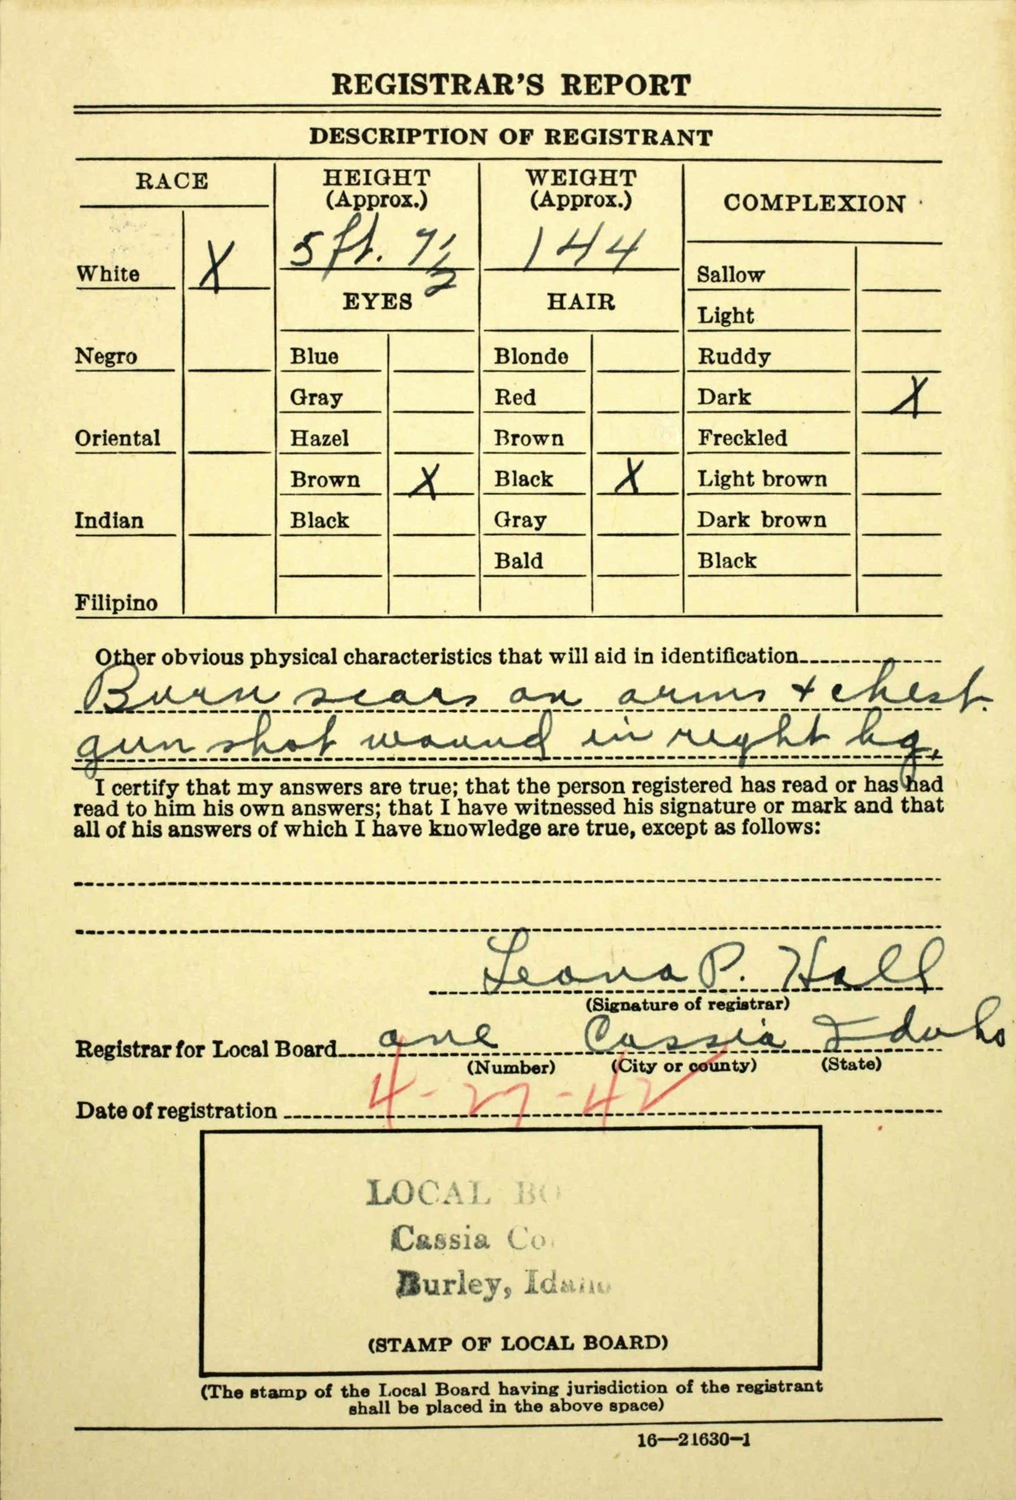 REGISTRAR'S REPORT
DESCRIPTION OF REGISTRANT
RACE
HEIGHT
(Approx.)
WEIGHT
(Approx.)
COMPLEXION
5 ft. 7 1/2
144
White X
EYES
HAIR
Sallow
Light
Negro
Blue
Blonde
Ruddy
Gray
Red
Dark X
Oriental
Hazel
Brown
Freckled
Brown X
Black X
Light brown
Indian
Black
Gray
Dark brown
Bald
Black
Filipino
Other obvious physical characteristics that will aid in identification
Burn scars on arms + chest.
gun shot wound in right leg.
I certify that my answers are true; that the person registered has read or has had
read to him his own answers; that I have witnessed his signature or mark and that
all of his answers of which I have knowledge are true, except as follows:
Leona P. Hall
(Signature of registrar)
Registrar for Local Board one Cassia Idaho
(Number) (City or county) (State)
Date of registration 4-27-42
LOCAL BO
Cassia Co
Burley, Idaho
(STAMP OF LOCAL BOARD)
(The stamp of the Local Board having jurisdiction of the registrant
shall be placed in the above space)
16—21630-1